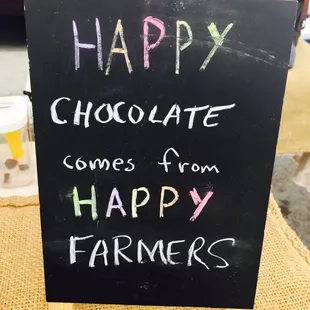 HAPPY
CHOCOLATE
comes from
HAPPY
FARMERS